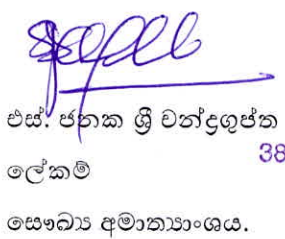 එස්. ජනක ශ්‍රී චන්ද්‍රගුප්ත
38
ලේකම්
සෞඛ්‍ය අමාත්‍යාංශය.